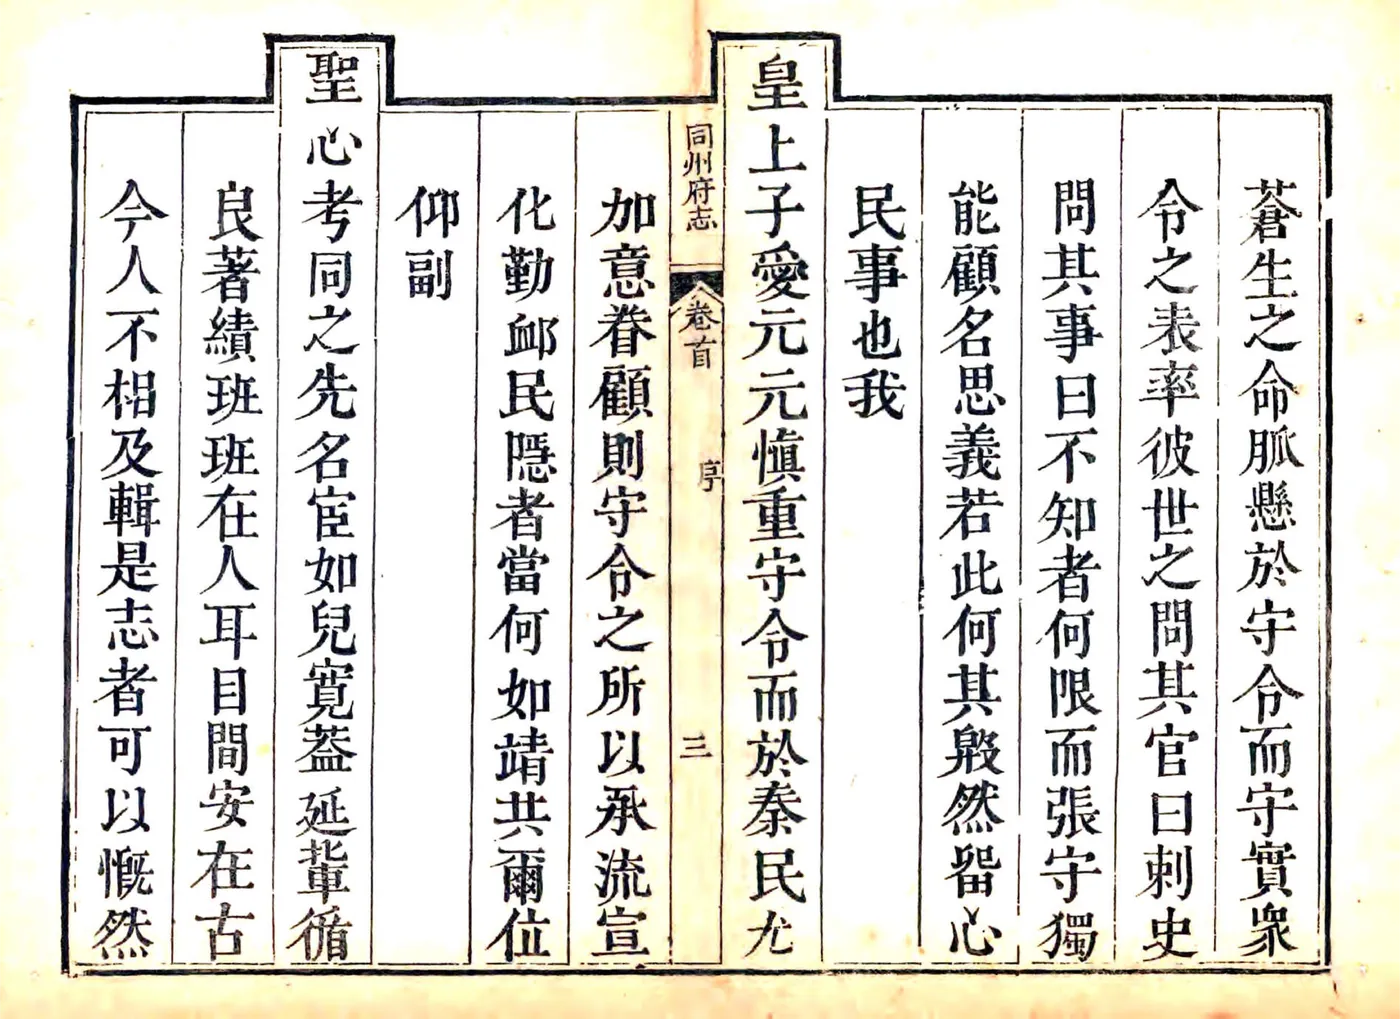 蒼生之命脈懸於守令而守實衆
令之表率彼世之問其官曰刺史
問其事曰不知者何限而張守獨
能顧名思義若此何其毅然留心
民事也我
皇上子愛元元慎重守令而於秦民尤
同州府志 卷首 序 三
加意眷顧則守令之所以承流宣
化勤邮民隱者當何如靖共爾位
仰副
聖心考同之先名宦如兒寬蓋延輩循
良著績班班在人耳目間安在古
今人不相及輯是志者可以慨然